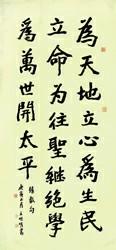 為天地立心為生民
立命為往聖繼絕學
為萬世開太平
張載句